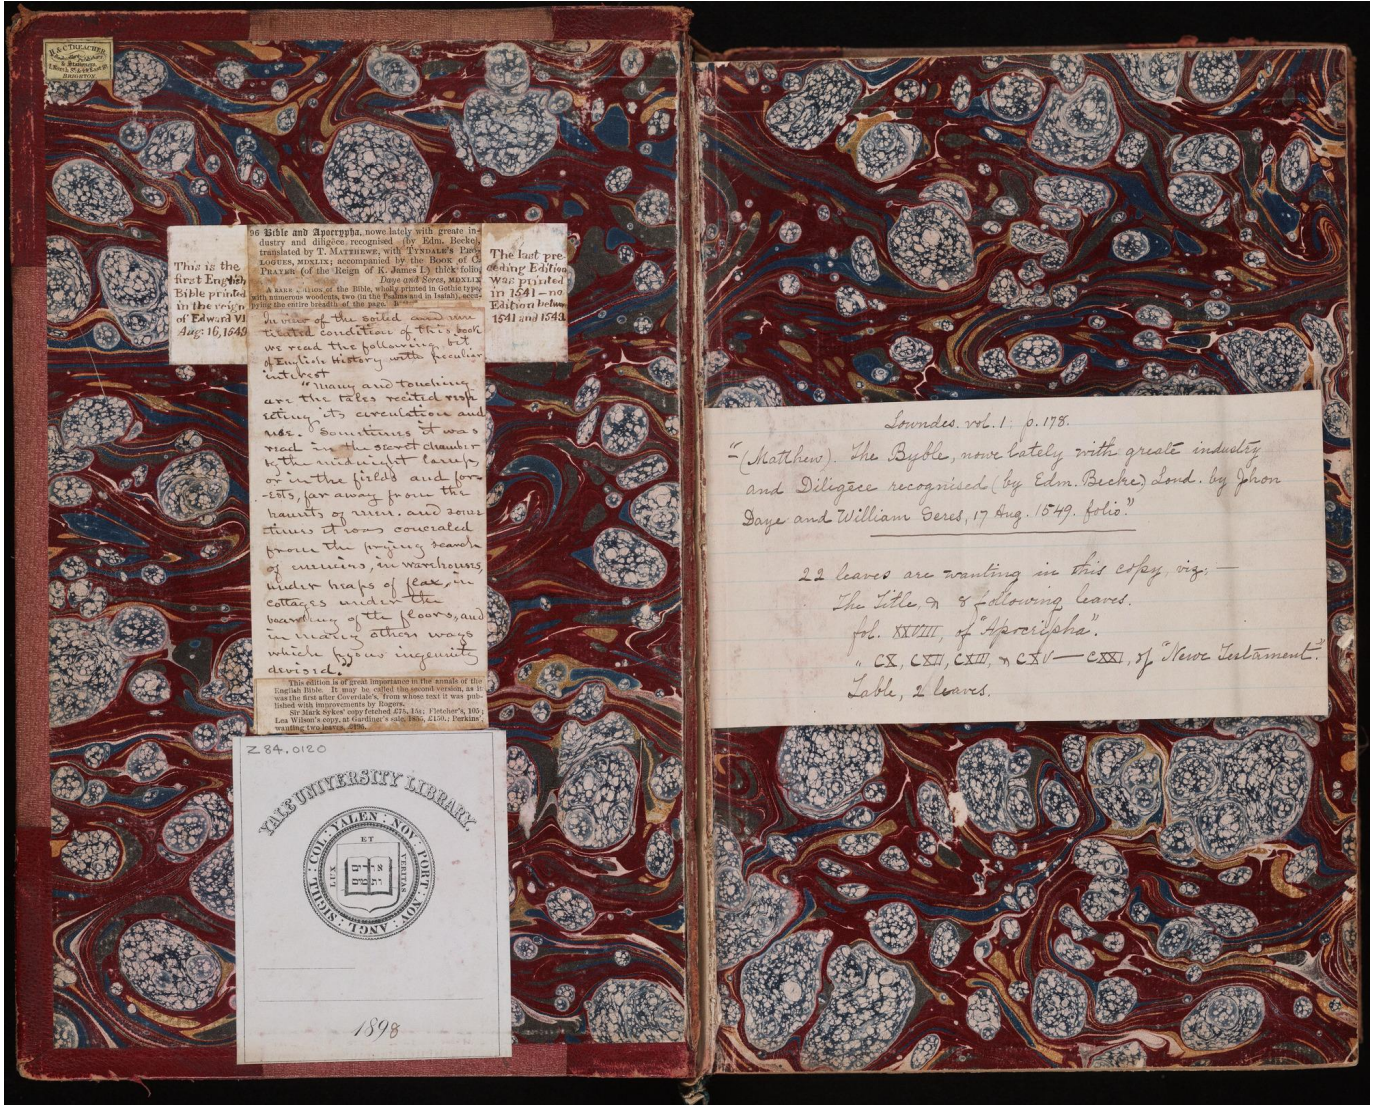 H. & C. TREACHER
& Stationers
1, North St. & 44 East St.
BRIGHTON
This is the
first English
Bible printed
in the reign
of Edward VI
Aug. 16, 1549
96 Bible and Apocrypha, nowe lately with greate in-
dustry and diligēce recognised (by Edm. Becke),
translated by T. MATTHEWE, with TYNDALE'S PRO-
LOGUES, MDXLIX; accompanied by the BOOK of C.
PRAYER (of the Reign of K. James I.) thick folio
Daye and Seres, MDXLIX
A RARE EDITION of the Bible, wholly printed in Gothic type,
with numerous woodcuts, two (in the Psalms and in Isaiah), occu-
pying the entire breadth of the page.
The last pre-
ceding Edition
was printed
in 1541 – no
Edition betw.
1541 and 1549.
In view of the soiled and mu
tilated condition of this book
we read the following bit
of English History with peculiar
interest
"Many and touching
are the tales recited resp
ecting its circulation and
use. Sometimes it was
read in the secret chamber
by the midnight lamp,
or in the fields and for
-ests, far away from the
haunts of men. and some
times it was concealed
from the prying search
of enemies, in warehouses,
under heaps of flax, in
cottages under the
boarding of the floors, and
in many others ways
which pious ingenuity
devised."
This edition is of great importance in the annals of the
English Bible. It may be called the second version, as it
was the first after Coverdale's, from whose text it was pub-
lished with improvements by Rogers.
Sir Mark Sykes' copy fetched £75, 15s; Fletcher's, 105;
Lea Wilson's copy, at Gardner's sale, 1855, £150,; Perkins'
wanting two leaves,
Z84.0120
YALE UNIVERSITY LIBRARY.
SIGILL : COL : YALEN : NOV : PORT : NOV : ANGL :
LUX
ET
VERITAS
אורים
ותמים
1898
Lowndes. vol. 1. p. 178.
"(Matthew). The Byble, nowe lately with greate industry
and Diligēce recognised (by Edm. Becke) Lond. by Jhon
Daye and William Seres, 17 Aug. 1549. folio."
22 leaves are wanting in this copy, viz:—
The Title, & 8 following leaves.
fol. XXVIII, of "Apocripha".
" CX, CXII, CXIII, & CXV — CXXI, of "Newe Testament."
Table, 2 leaves.